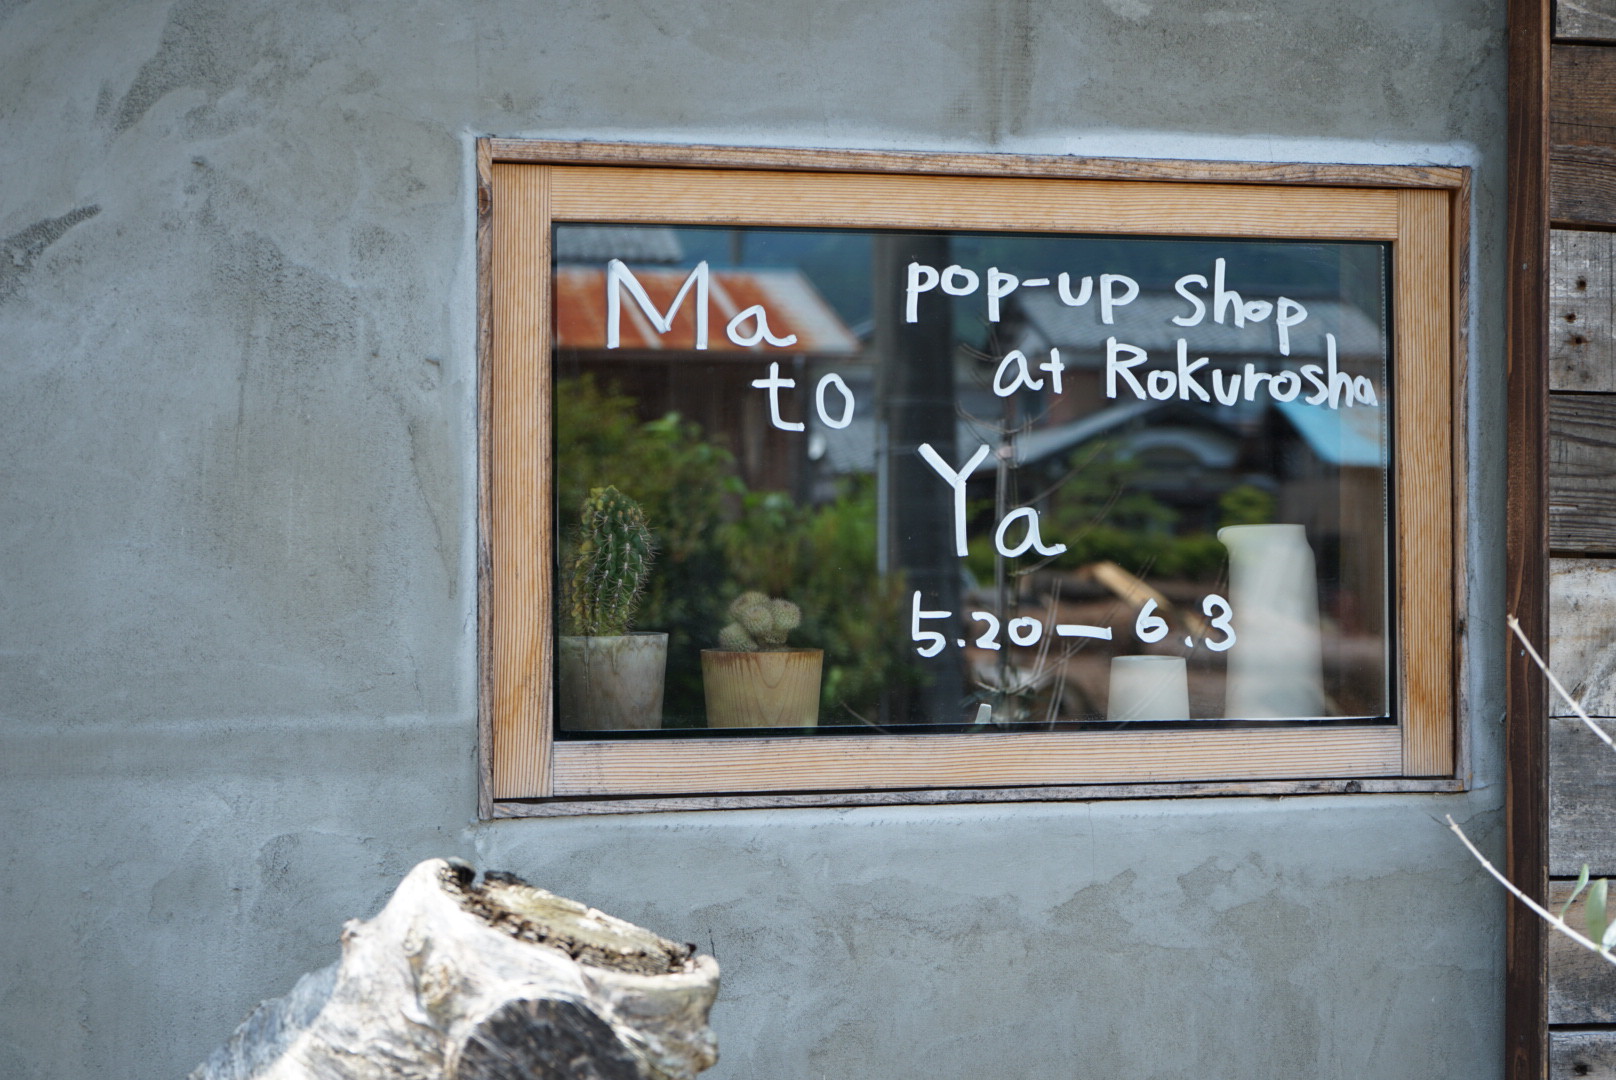 Ma
to
Ya
pop-up shop
at Rokurosha
5.20 — 6.3